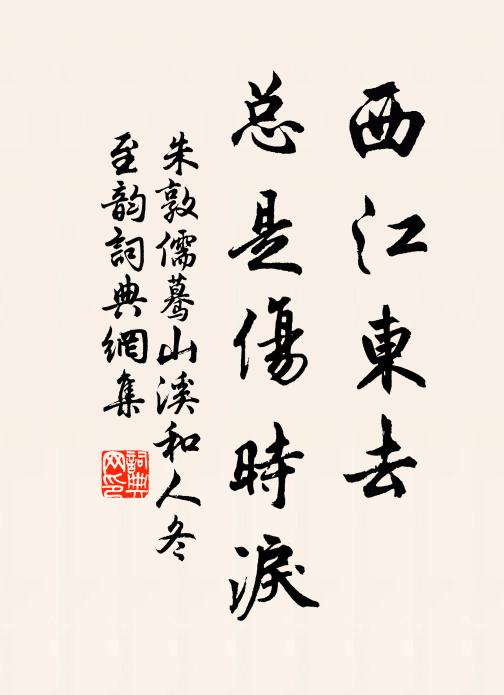 西江東去
总是傷時淚
朱敦儒蓦山溪和人冬
至韵詞典網集
詞典网印